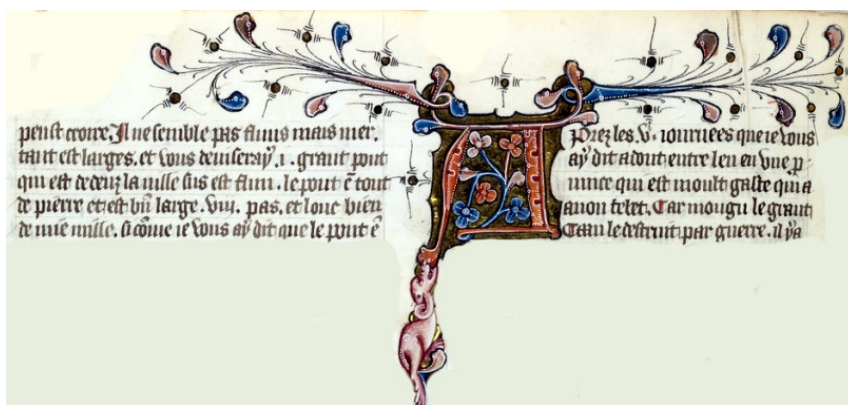 peust croire. Il ne semble pas fluns mais mer.
tant est larges. et vous deuiseray .i. grant pont
qui est dedenz la uille sus est flun. le pont ē tout
de pierre et est bñ large .viij. pas. et lonc bien
de mie mille. si cōme ie vous ay dit que le pont ē
Aprez les .v. iournees que ie vous
ay dit adont entre len en vne ꝓ
uince qui est moult gaste qui a
a non tebet. Car mongu le grant
Caan le destruit par guerre. il y a